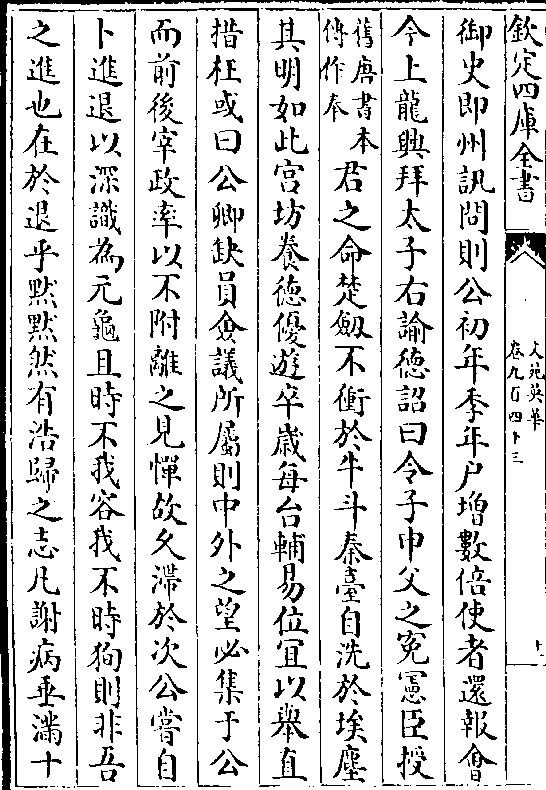 欽定四庫全書
文苑英華
卷九百四十三
御史即州訊問則公初年季年户增數倍使者還報會
今上龍興拜太子右諭德詔曰令子申父之寃憲臣授
舊唐書本傳作奉君之命楚劔不衝於牛斗秦臺自洗於埃塵
其明如此宫坊養德優遊卒歲每台輔易位宜以舉直
措枉或曰公卿缺員僉議所屬則中外之望必集于公
而前後宰政率以不附離之見憚故久滯於次公嘗自
卜進退以深識為元龜且時不我容我不時狥則非吾
之進也在於退乎黙黙然有浩歸之志凡謝病垂滿十